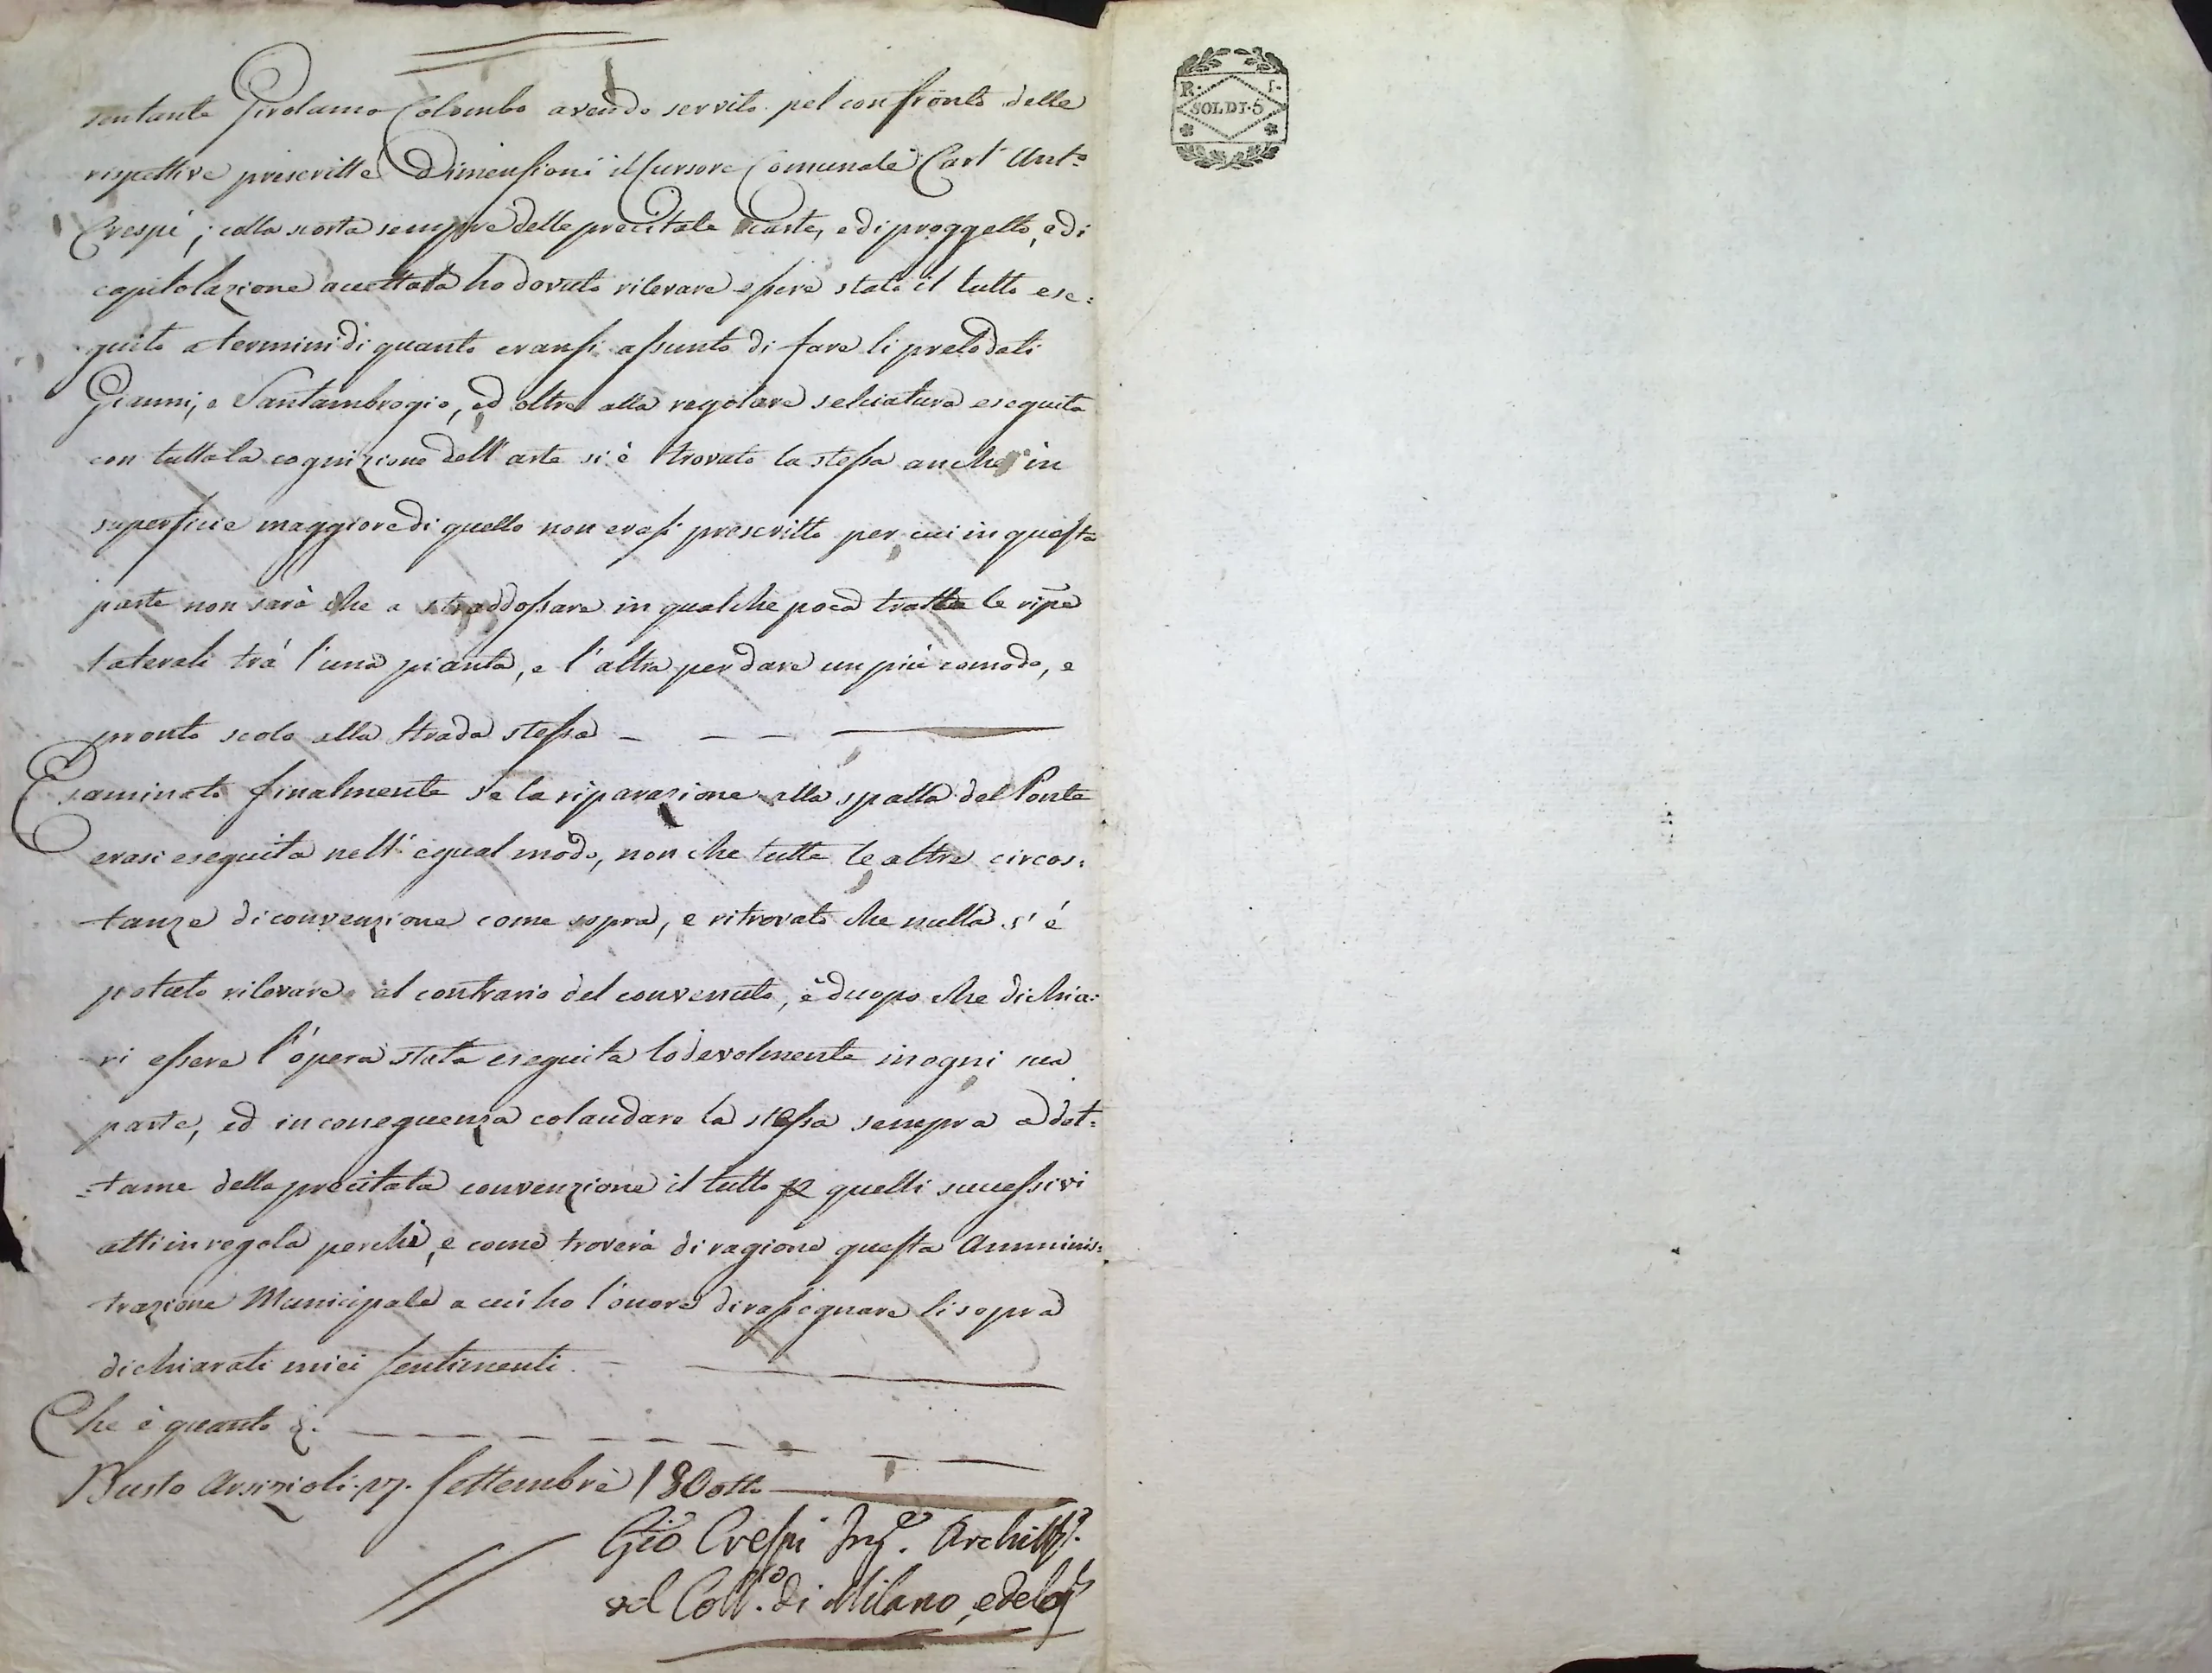 sentante Girolamo Colombo avendo servito pel confronto delle
rispettive prescritte Dimensioni il Cursore Comunale Carl' Ant.o
Crespi; colla scorta sempre delle precitate carte, e di proggetto, e di
capitolazione accettata ho dovuto rilevare essere stato il tutto ese:
guito a termini di quanto eransi assunto di fare li prelodati
Gianni, e Santambrogio, ed oltre alla regolare selciatura eseguita
con tutta la cognizione dell'arte si è trovato la stessa anche in
superficie maggiore di quello non erasi prescritto per cui in questa
parte non sarà che a straddossare in qualche poca tratta le ripe
laterali trà l'una pianta, e l'altra per dare un più comodo, e
pronto scolo alla strada stessa
Esaminato finalmente se la riparazione alla spalla del Ponte
erasi eseguita nell'egual modo, non che tutte le altre circos:
tanze di convenzione come sopra, e ritrovato che nulla s'é
potuto rilevare al contrario del convenuto, è duopo che dichia:
ri essere l'opera stata eseguita lodevolmente in ogni sua
parte, ed in coneguenza colaudare la stessa sempre a det:
:tame della precitata convenzione il tutto p quelli successivi
atti in regola perchè, e come troverà di ragione questa Amminis:
trazione Municipale a cui ho l'onore di rassegnare li sopra
dichiarati miei sentimenti.
Che è quanto &.
Busto Arsizio li. 17. Settembre 180otto
Gio Crespi Ing.e Archit.o
del Coll.o di Milano, e deleg.o
R. I.
SOLDI. 5